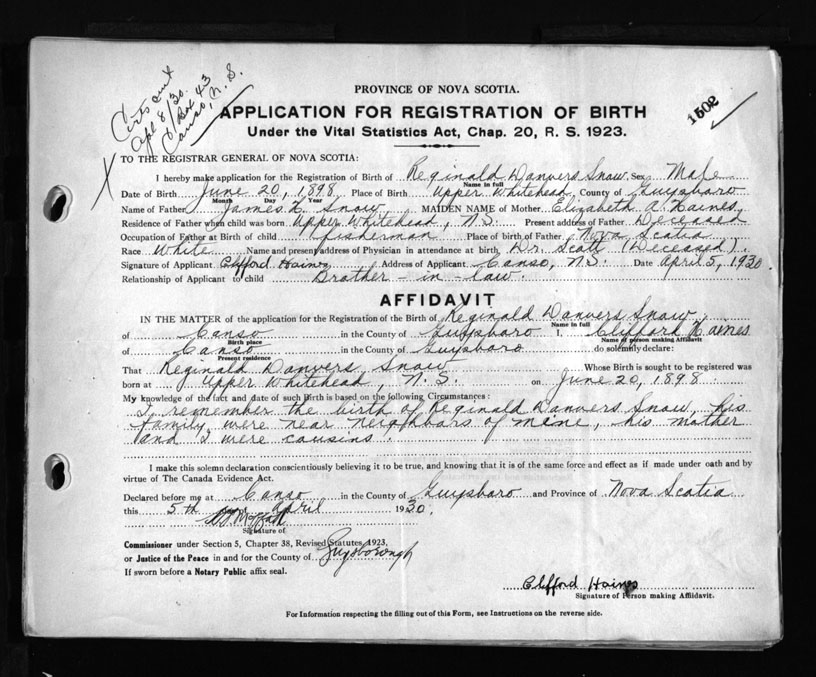 Certs sent
Apl 8/30.
Box 43
Canso, N. S.
1502
PROVINCE OF NOVA SCOTIA.
APPLICATION FOR REGISTRATION OF BIRTH
Under the Vital Statistics Act, Chap. 20, R. S. 1923.
TO THE REGISTRAR GENERAL OF NOVA SCOTIA:
I hereby make application for the Registration of Birth of Reginald Danvers Snow Sex Male
Name in full
Date of Birth June 20, 1898 Place of Birth Upper Whitehead, County of Guysboro
Month Day Year
Name of Father James Snow MAIDEN NAME of Mother Elizabeth A. Haines
Residence of Father when child was born Upper Whitehead, N.S. Present address of Father Deceased
Occupation of Father at Birth of child fisherman Place of birth of Father Nova Scotia
Race White Name and present address of Physician in attendance at birth Dr. Scott (Deceased).
Signature of Applicant Clifford Haines Address of Applicant Canso, N.S. Date April 5, 1930.
Relationship of Applicant to child Brother-in-law.
AFFIDAVIT
IN THE MATTER of the application for the Registration of the Birth of Reginald Danvers Snow,
Name in full
of Canso in the County of Guysboro I, Clifford Haines
Birth place Name of person making Affidavit
of Canso in the County of Guysboro do solemnly declare:
Present residence
That Reginald Danvers Snow Whose Birth is sought to be registered was
born at Upper Whitehead, N.S. on June 20, 1898.
My knowledge of the fact and date of such Birth is based on the following Circumstances:
I remember the birth of Reginald Danvers Snow, his
family were near neighbors of mine, his mother
and I were cousins.
I make this solemn declaration conscientiously believing it to be true, and knowing that it is of the same force and effect as if made under oath and by
virtue of The Canada Evidence Act.
Declared before me at Canso in the County of Guysboro and Province of Nova Scotia
this 5th April 1930.
Signature of
Commissioner under Section 5, Chapter 38, Revised Statutes, 1923,
or Justice of the Peace in and for the County of Guysborough
If sworn before a Notary Public affix seal.
Clifford Haines
Signature of Person making Affidavit.
For Information respecting the filling out of this Form, see Instructions on the reverse side.